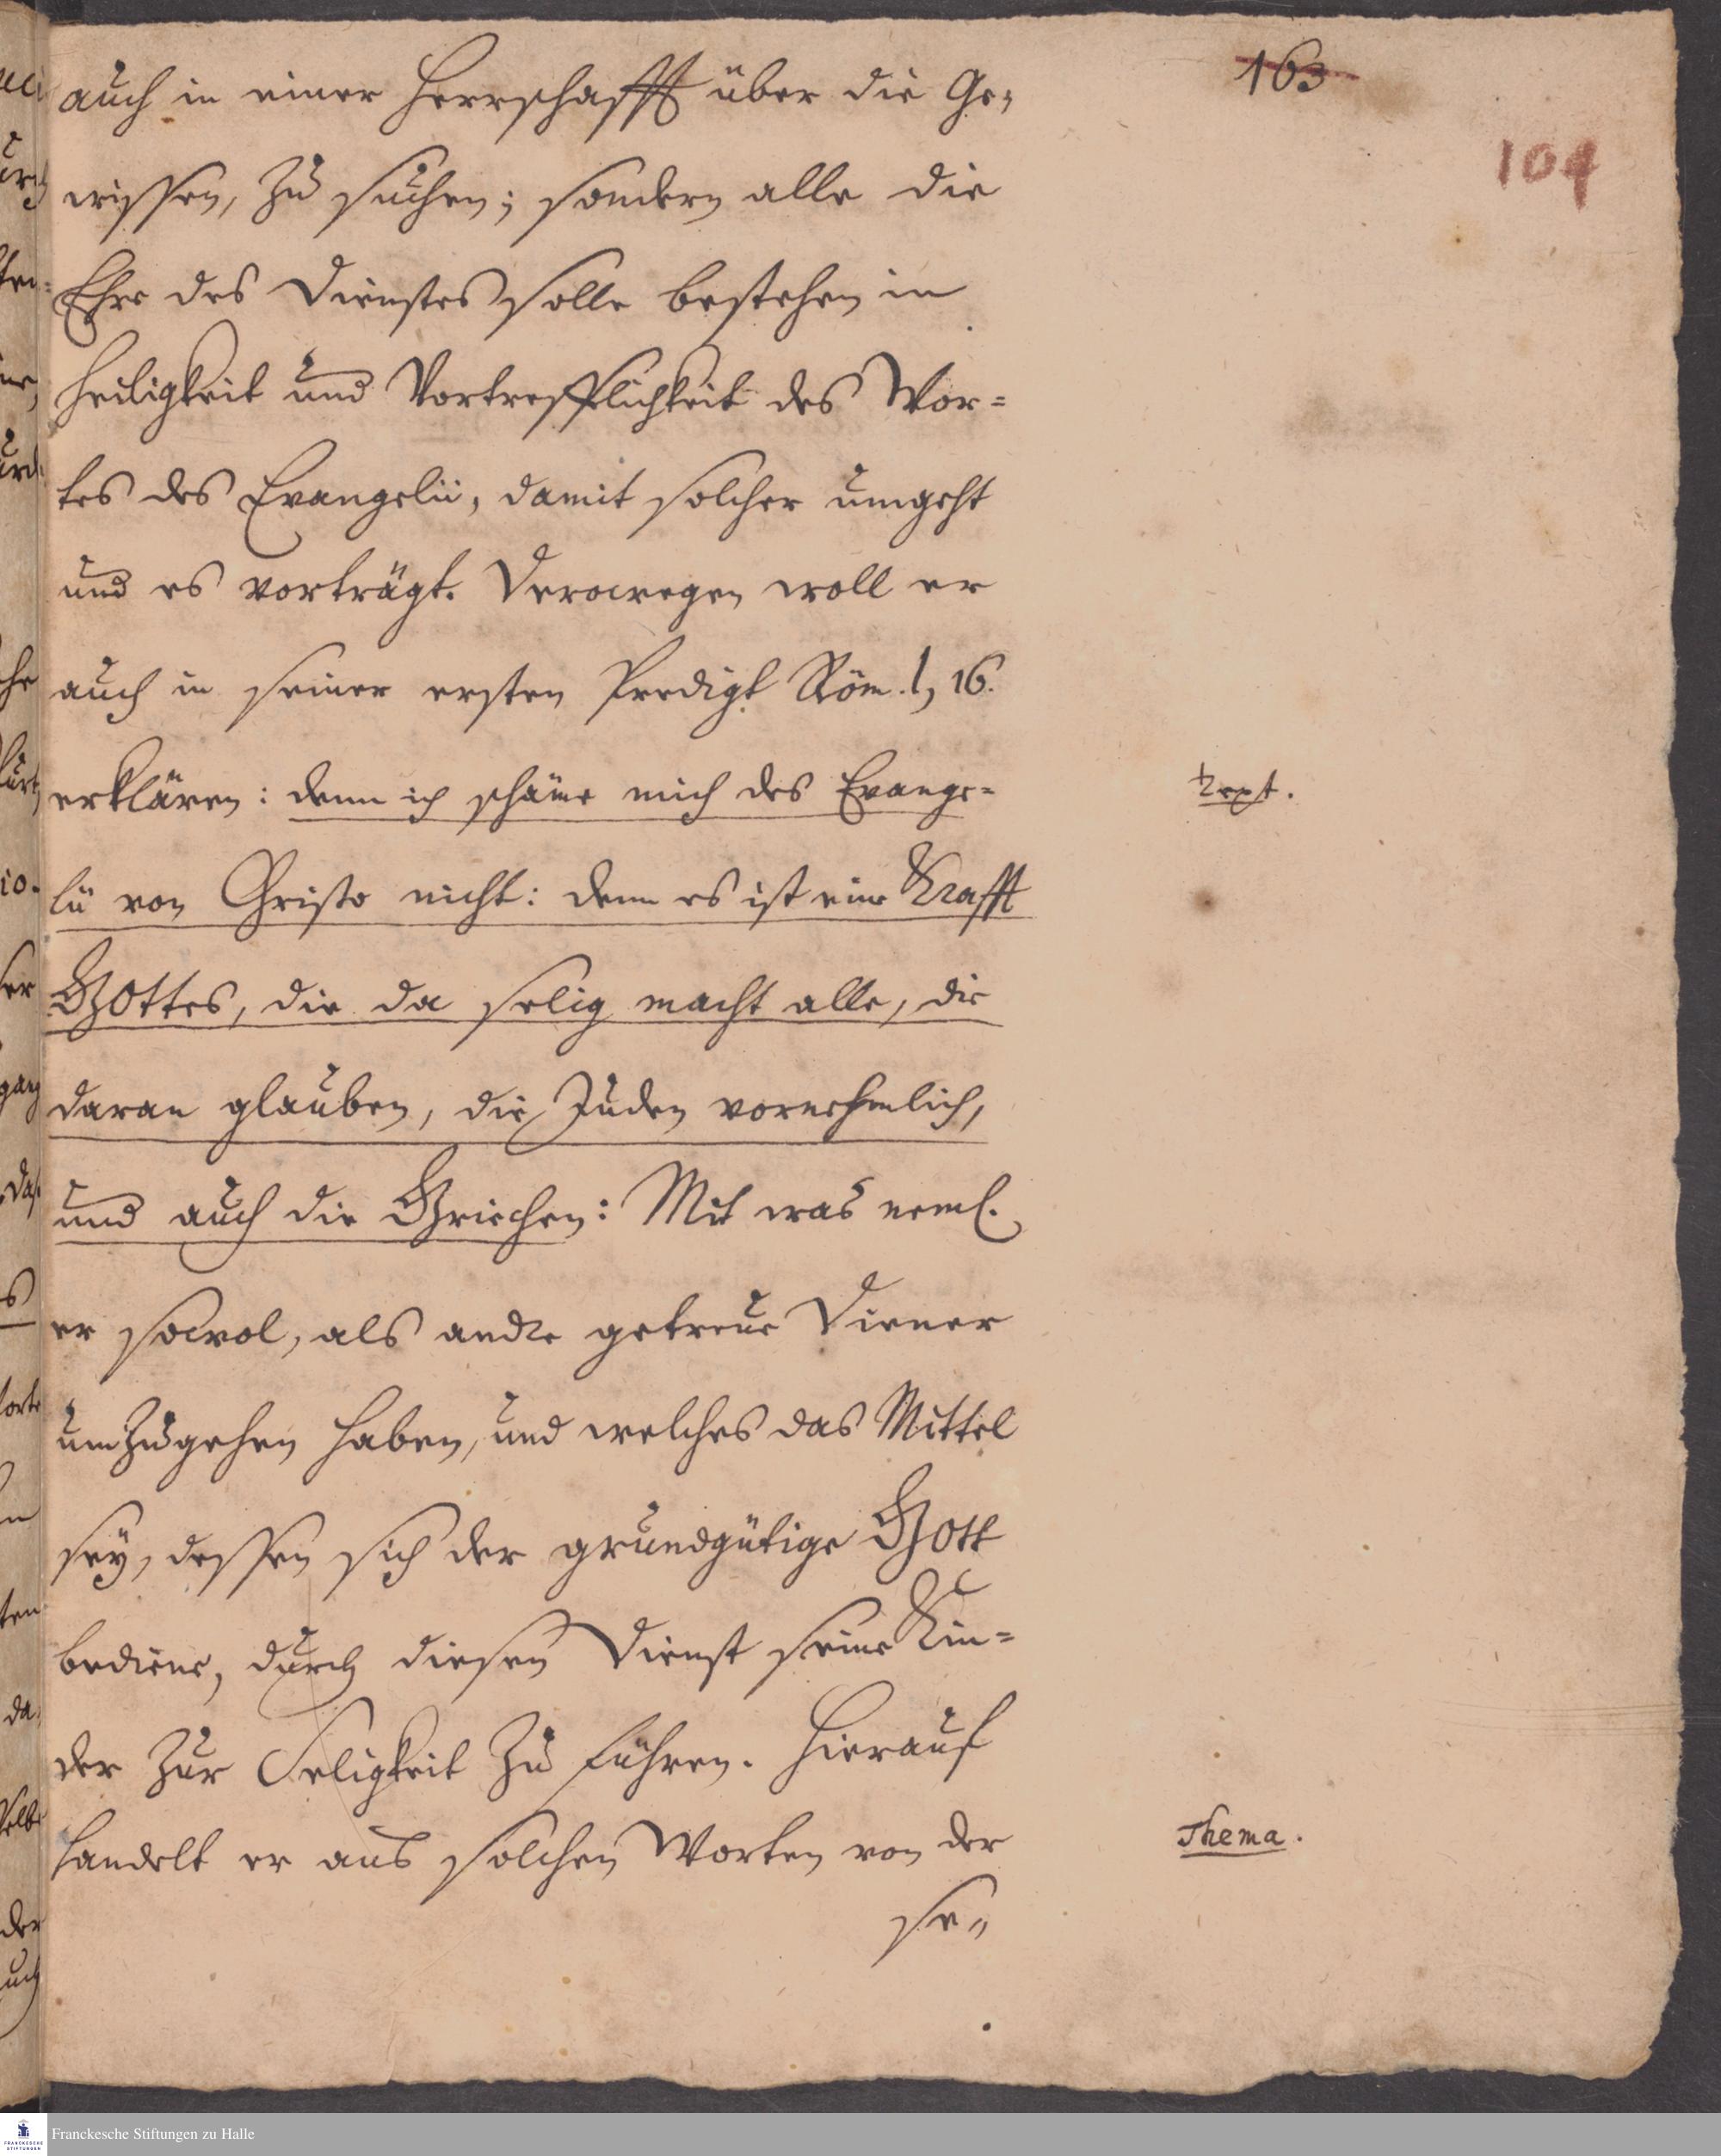 163
104
auch in einer Herrschafft über die Ge-
wissen, zu suchen; sondern alle die
Ehre des Dienstes solle bestehen in
Heiligkeit und Vortrefflichkeit des Wor=
tes des Evangelii, damit solcher umgeht
und es vorträgt. Derowegen woll er
auch in seiner ersten Predigt Röm. 1, 16.
erklären: denn ich schäme mich des Evange=
Text.
lii von Christo nicht: denn es ist eine Krafft
GOttes, die da selig macht alle, die
daran glauben, die Juden vornehmlich,
und auch die Griechen: Mit was neml.
er sowol, als andre getreue Diener
umzugehen haben, und welches das Mittel
sey, dessen sich der grundgütige GOtt
bediene, durch diesen Dienst seine Kin=
der zur Seligkeit zu führen. Hierauf
handelt er aus solchen Worten von der
Thema.
se=
Franckesche Stiftungen zu Halle